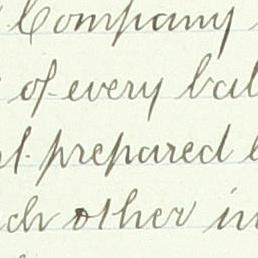 Company
of every bal
prepared
other in